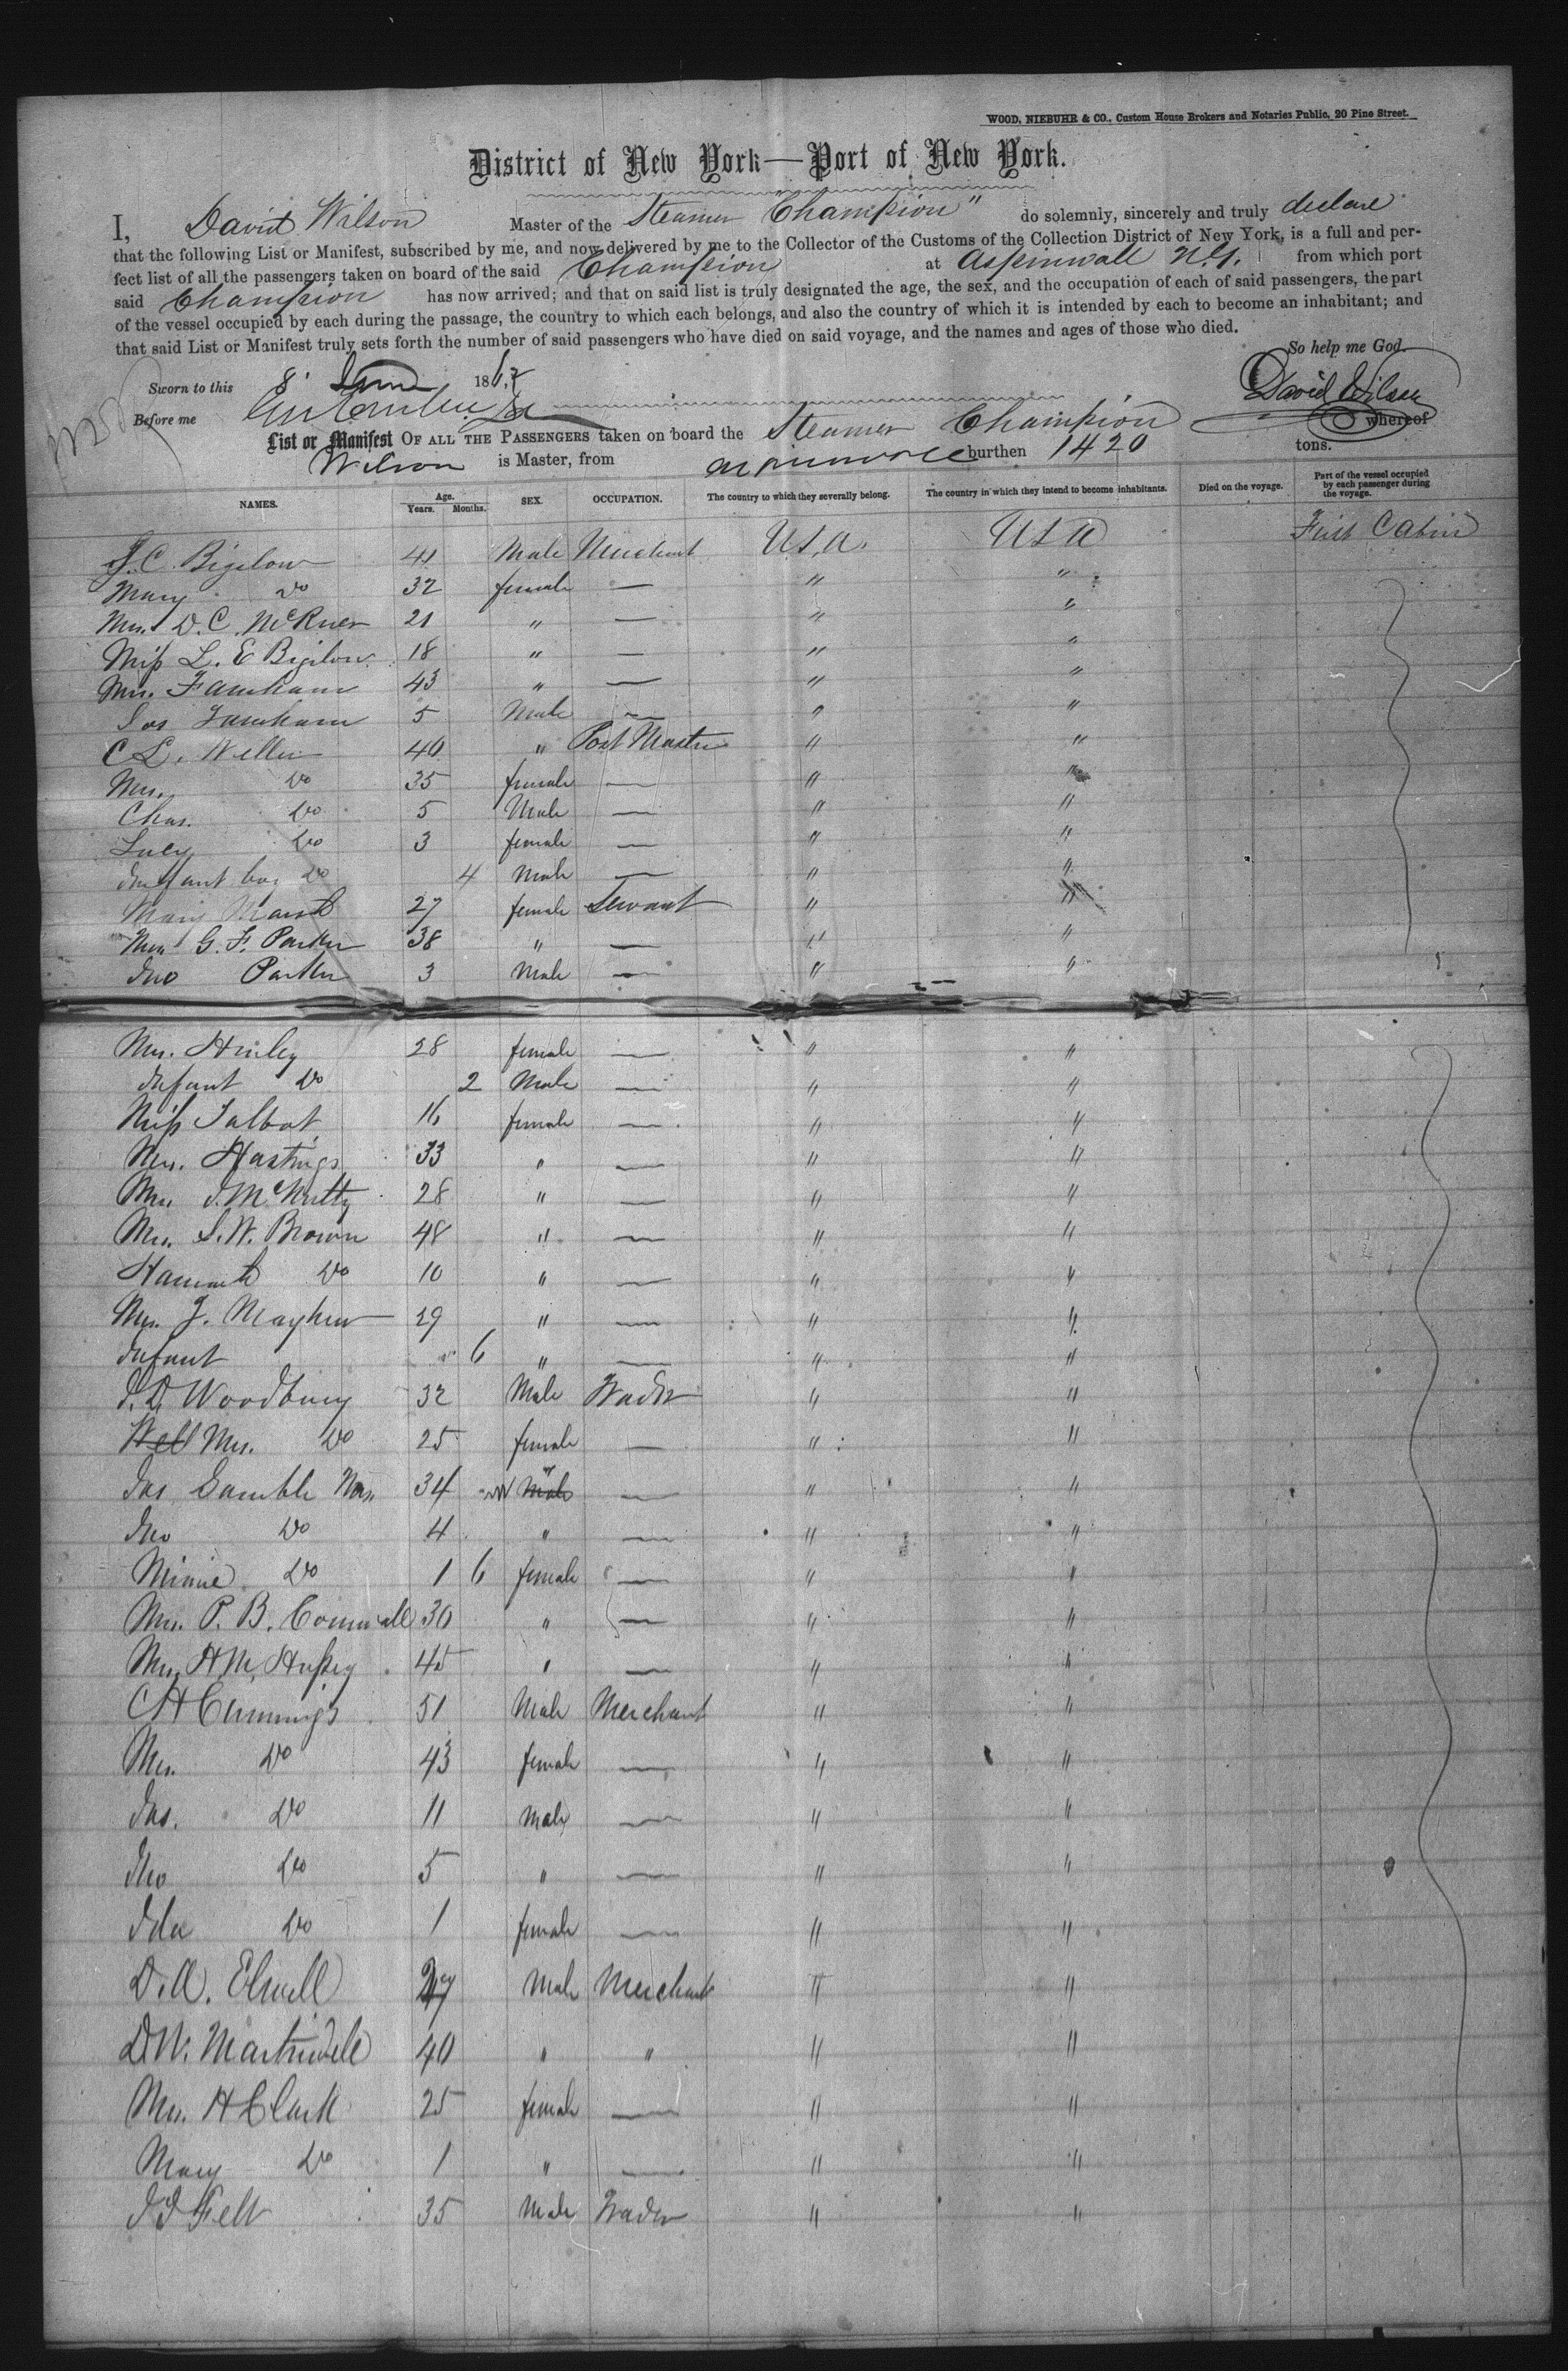 WOOD, NIEBUHR & CO., Custom House Brokers and Notaries Public, 20 Pine Street.
District of New York—Port of New York.
I, David Wilson Master of the Steamer "Champion" do solemnly, sincerely and truly declare
that the following List or Manifest, subscribed by me, and now delivered by me to the Collector of the Customs of the Collection District of New York, is a full and per-
fect list of all the passengers taken on board of the said Champion at Aspinwall N.G. from which port
said Champion has now arrived; and that on said list is truly designated the age, the sex, and the occupation of each of said passengers, the part
of the vessel occupied by each during the passage, the country to which each belongs, and also the country of which it is intended by each to become an inhabitant; and
that said List or Manifest truly sets forth the number of said passengers who have died on said voyage, and the names and ages of those who died.
So help me God.
Sworn to this 8 June 1862
David Wilson
Before me
List or Manifest OF ALL THE PASSENGERS taken on board the Steamer Champion whereof
Wilson is Master, from Aspinwall burthen 1420 tons.
NAMES. Age. Years. Months. SEX. OCCUPATION. The country to which they severally belong. The country in which they intend to become inhabitants. Died on the voyage. Part of the vessel occupied by each passenger during the voyage.
J. C. Bigelow 41 Male Merchant U.S.A. USA First Cabin
Mary Do 32 female — " "
Mrs. D. C. McRuer 21 " — " "
Miss L. E Bigelow 18 " — " "
Mrs. Farnham 43 " — " "
Jos Farnham 5 Male — " "
C L. Weller 40 " Post Master " "
Mrs. Do 35 female — " "
Chas. Do 5 Male — " "
Lucy Do 3 female — " "
Infant boy Do 4 Male — " "
Mary Marsh 27 female Servant " "
Mrs G. F. Parker 38 " — " "
Jno Parker 3 Male — " "
Mrs. Hurley 28 female — " "
Infant Do 2 Male — " "
Miss Talbot 16 female — " "
Mrs. Hastings 33 " — " "
Mrs J. McNutty 28 " — " "
Mrs. S. W. Brown 48 " — " "
Hannah Do 10 " — " "
Mrs. J. Mayhew 29 " — " "
Infant 6 " — " "
J. D. Woodbury 32 Male Trader " "
Mrs. Do 25 female — " "
Jas Gamble 34 Male — " "
Jno Do 4 " — " "
Minnie Do 1 6 female — " "
Mrs. P. B. Cornwall 30 " — " "
Mrs H. M. Hussey 45 " — " "
C H Cummings 51 Male Merchant " "
Mrs. Do 43 female — " "
Jas. Do 11 Male — " "
Jno Do 5 " — " "
Ida Do 1 female — " "
D. A. Elwell Male Merchant " "
D. W. Martindale 40 " " " "
Mrs. H Clark 25 female — " "
Mary Do 1 " — " "
J J Felt 35 Male Trader " "